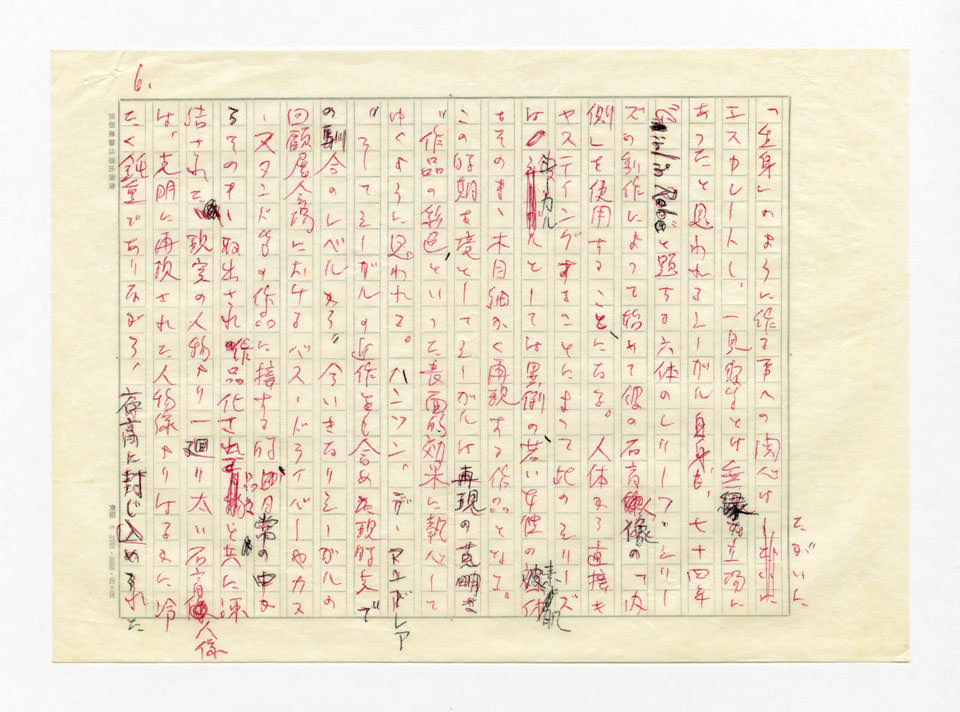 6.
「生身」のまゝに作る事への関心は
たがいに
エスカレートし、一見殆ど無縁な立場に
あったと思われるシーガル自身も、七十四年
"Girl in Robe"と題する六体のレリーフシリー
ズの新作によって始めて彼の石膏人像の「内
側」を使用することになる。人体から直接キ
ャスティングすることによって此のシリーズ
は
シーガルとしては異例の、若い女性の
素肌
をそのまゝ木目細かく再現する作品となる。
この時期を境としてシーガルは再現の克明さ
"作品の彩色、といった表面的効果に執心して
ゆくように思われる。ハンソン、デ・アンドレア
そしてシーガルの近作をも含め た現時点で
の 今 のレベルから 今いきなりシーガルの
回顧展会場における バスドライバーやカス
・スタンド等の作品に接する時、日常の中か
らそのまゝ取出され作品化された 品々と共に凍
結された、現実の人物より一廻り太い石膏人像
は、克明に再現された人物像よりはるかに冷
たく鈍重でありながら、石膏に封じ込められた